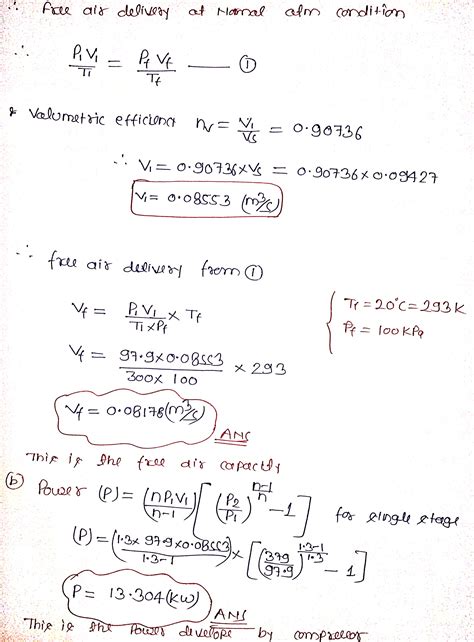 ∴ free air delivery at Normal atm condition
P₁V₁/T₁ = P_f V_f/T_f —— ①
& Volumetric efficienct n_v = V₁/V_s = 0.90736
∴ V₁ = 0.90736×V_s = 0.90736×0.09427
V₁ = 0.08553 (m³/s)
∴ free air delivery from ①
V_f = P₁V₁/(T₁×P_f) × T_f
T_f = 20°C = 293 K
P_f = 100 KPa
V_f = (97.9×0.08553)/(300×100) × 293
V_f = 0.08178 (m³/s)
ANS
This is the free air capacity
(b) Power (P) = (nP₁V₁/(n-1)) [(P₂/P₁)^((n-1)/n) - 1] for single stage
(P) = (1.3×97.9×0.08553/(1.3-1)) × [(379/97.9)^((1.3-1)/1.3) - 1]
P = 13.304 (kW)
ANS
This is the Power develope by compressor